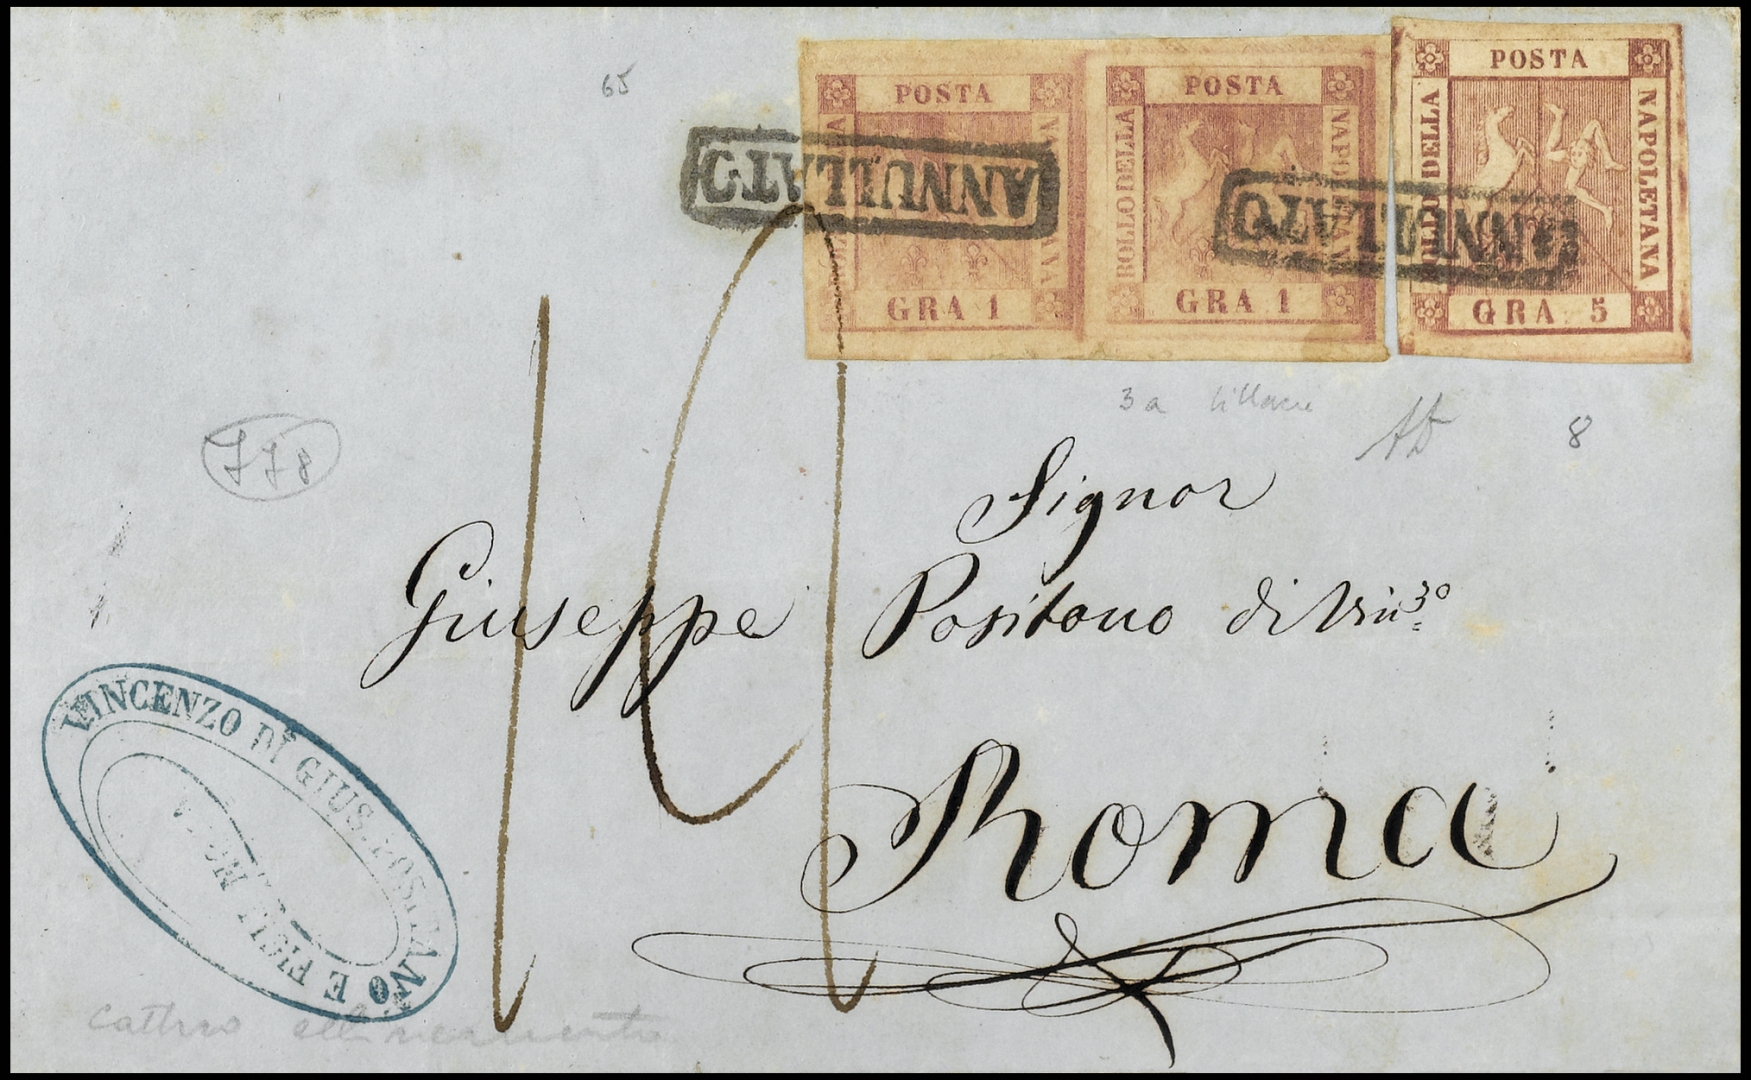 65
POSTA
BOLLO DELLA
NAPOLETANA
GRA 1
POSTA
BOLLO DELLA
NAPOLETANA
GRA 1
POSTA
BOLLO DELLA
NAPOLETANA
GRA 5
ANNULLATO
ANNULLATO
3a lillacre
8
778
Signor
Giuseppe Positano di Vin:zo
Roma
VINCENZO DI GIUS. POSITANO E FIGLI